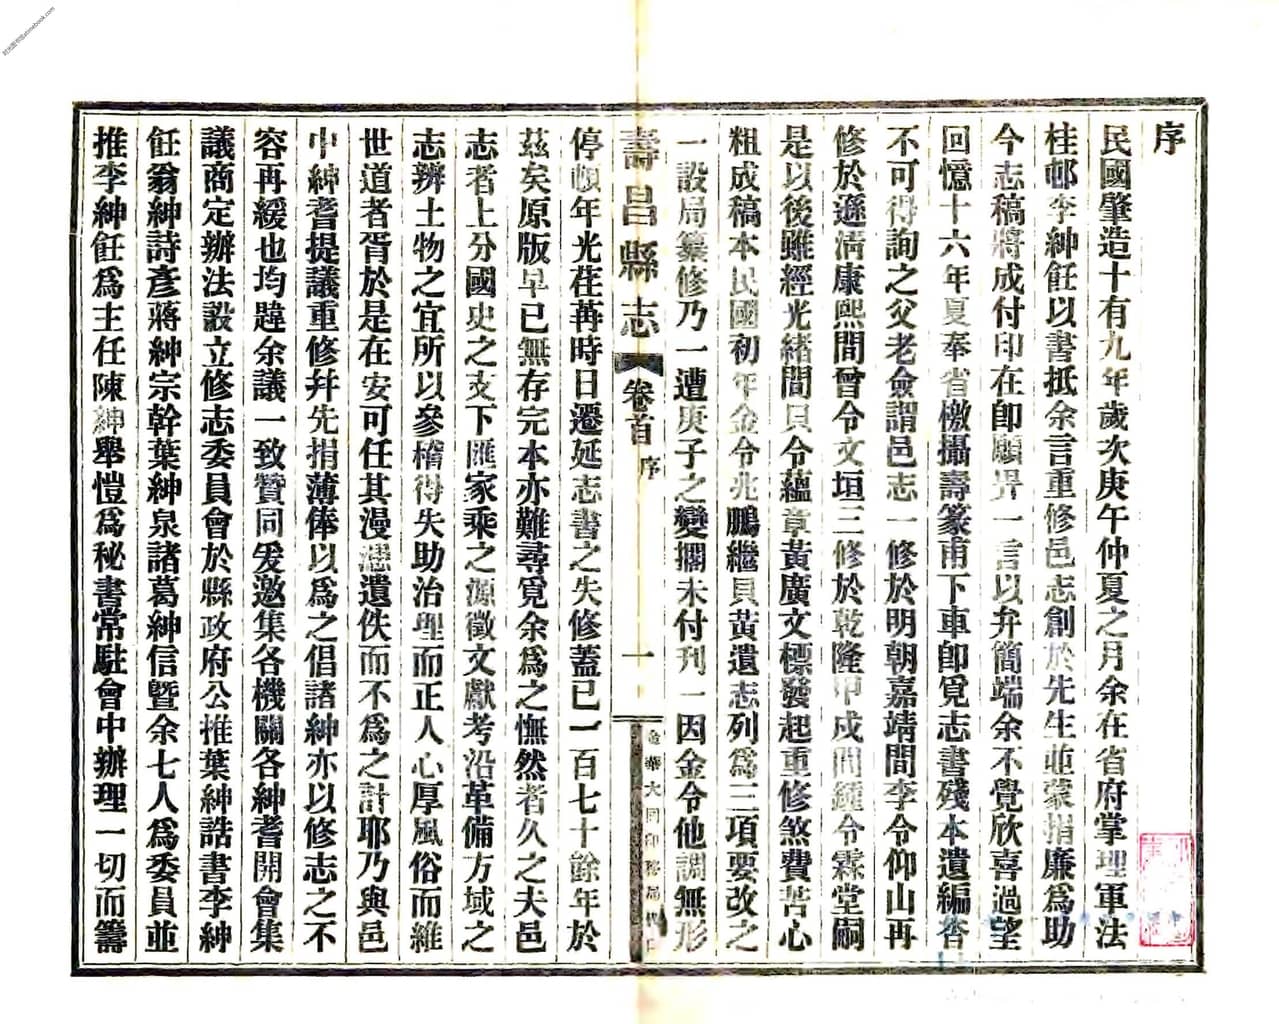 序
民國肇造十有九年歲次庚午仲夏之月余在省府掌理軍法
桂邨李紳飪以書抵余言重修邑志創於先生並蒙捐廉爲助
今志稿將成付印在卽願畀一言以弁簡端余不覺欣喜過望
回憶十六年夏奉省檄攝壽篆甫下車卽覓志書殘本遺編杳
不可得詢之父老僉謂邑志一修於明朝嘉靖間李令仰山再
修於遜淸康熙間曾令文垣三修於乾隆甲戍間鍾令霖堂嗣
是以後雖經光緒間貝令蘊章黃廣文標發起重修煞費苦心
粗成稿本民國初年金令兆鵬繼貝黃遺志列爲三項要改之
一設局纂修乃一遭庚子之變擱未付刊一因金令他調無形
停頓年光荏苒時日遷延志書之失修蓋已一百七十餘年於
茲矣原版早已無存完本亦難尋覓余爲之憮然者久之夫邑
志者上分國史之支下匯家乘之源徵文獻考沿革備方域之
志辨土物之宜所以參稽得失助治理而正人心厚風俗而維
世道者胥於是在安可任其漫漶遺佚而不爲之計耶乃與邑
中紳耆提議重修幷先捐薄俸以爲之倡諸紳亦以修志之不
容再緩也均韙余議一致贊同爰邀集各機關各紳耆開會集
議商定辦法設立修志委員會於縣政府公推葉紳誥書李紳
飪翁紳詩彥蔣紳宗幹葉紳泉諸葛紳信曁余七人爲委員並
推李紳飪爲主任陳紳舉愷爲秘書常駐會中辦理一切而籌
壽昌縣志
卷首 序
一
金華大同印務局